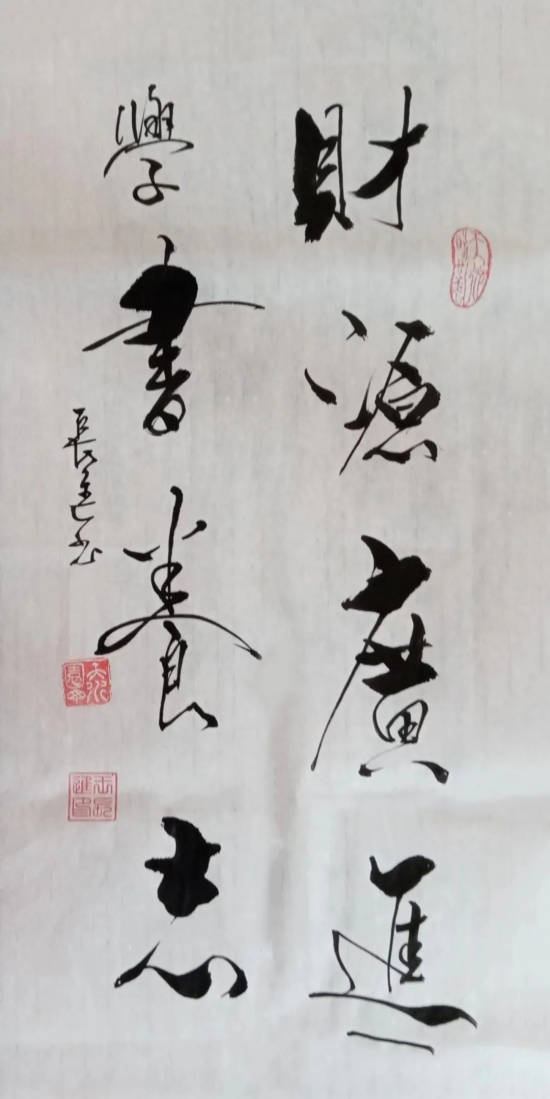 財源廣進
學書養志
長進书